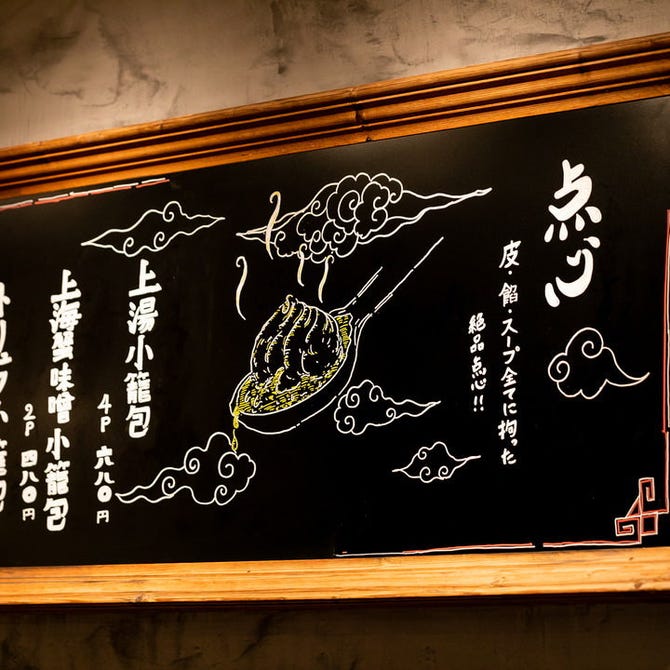 点心
皮・餡・スープ全てに拘った
絶品点心!!
上湯小籠包
4P 六八〇円
上海蟹味噌小籠包
2P 四八〇円